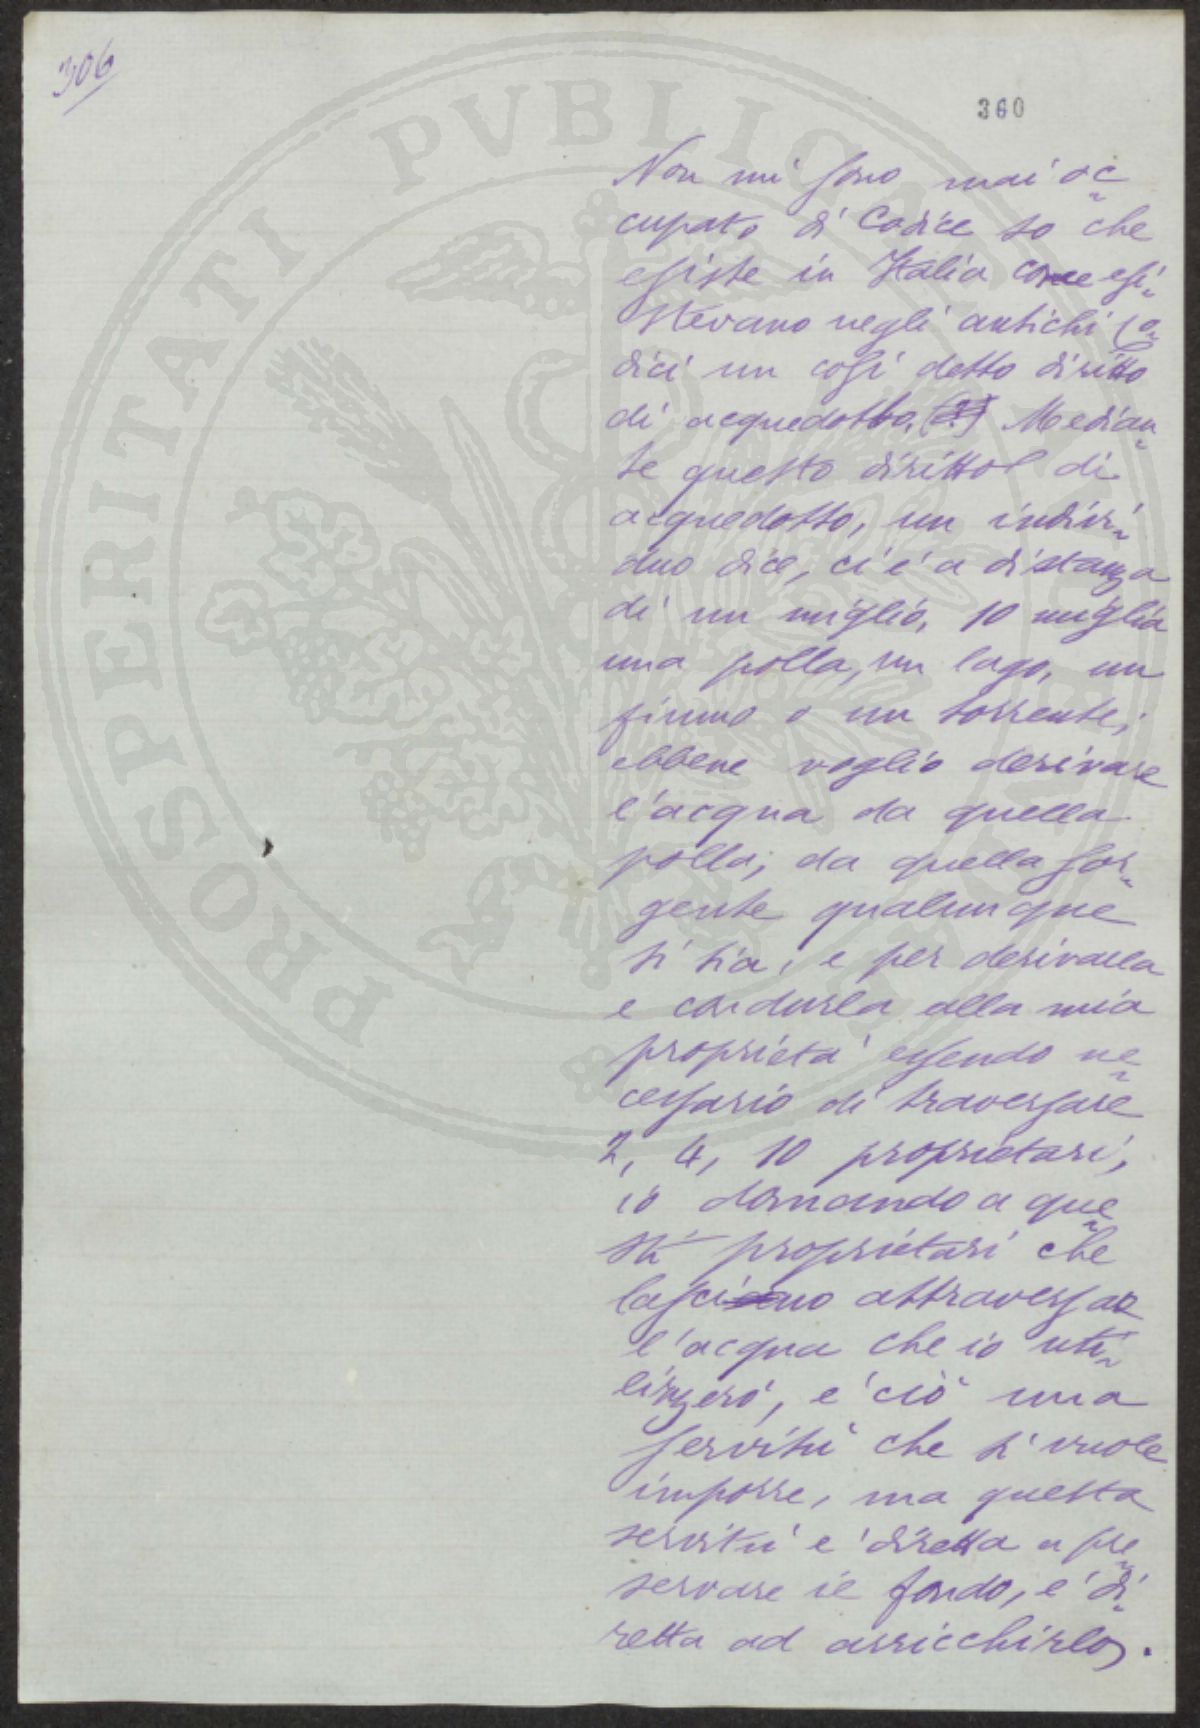 306
360
Non mi sono mai oc
cupato di Codice so che
esiste in Italia come esi-
stevano negli antichi Co-
dici un così detto diritto
di acquedotto. Median
te questo diritto di
acquedotto, un indivi-
duo dice, ci è a distanza
di un miglio, 10 miglia
una polla, un lago, un
fiume o un torrente;
ebbene voglio derivare
l'acqua da quella
polla, da quella sor-
gente qualunque
si sia, e per derivarla
e condurla alla mia
proprietà essendo ne-
cessario di traversare
2, 4, 10 proprietari,
io domando a que-
sti proprietari che
lasciano attraversar
l'acqua che io uti-
lizzerò, e ciò una
servitù che si vuole
imporre, ma questa
servitù è diretta a pre-
servare il fondo, è di-
retta ad arricchirlo.
PROSPERITATI PVBLICAE